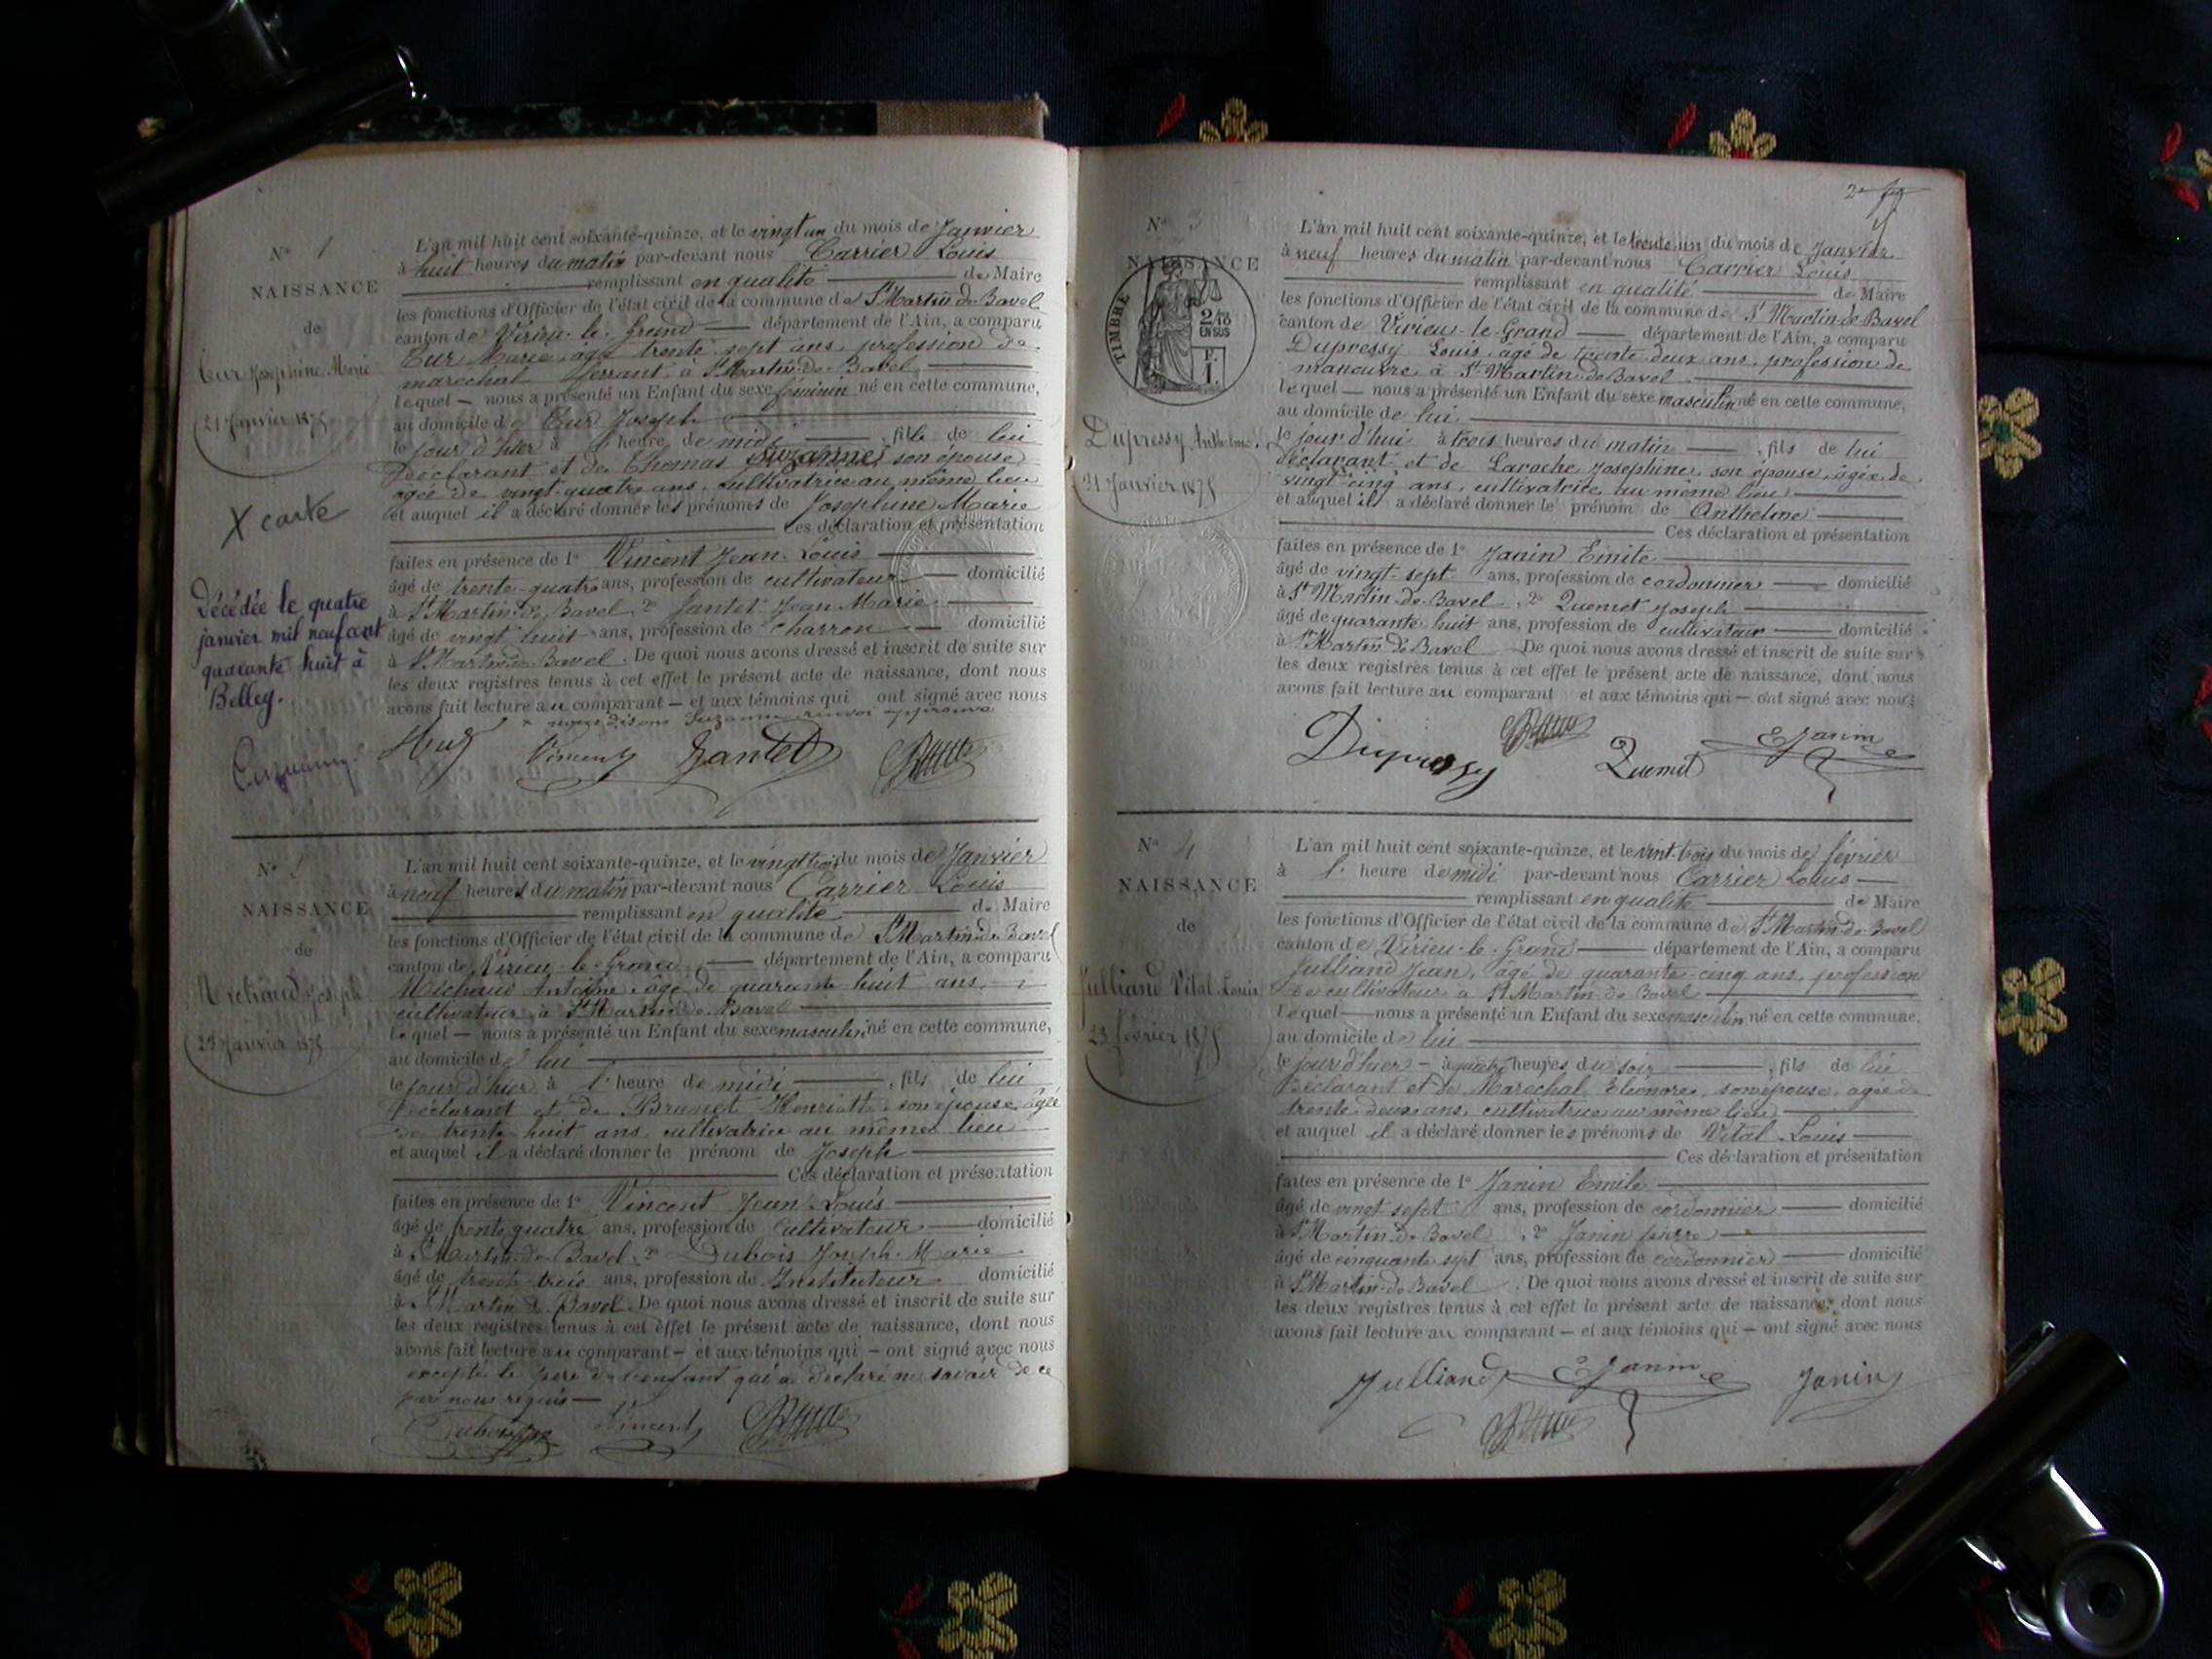 N° 1
NAISSANCE
de
Josephine Marie
21 Janvier 1875
X carte
Décédée le quatre
janvier mil neuf cent
quarante huit à
Belley.
L'an mil huit cent soixante-quinze, et le vingt un du mois de Janvier
à huit heures du matin par-devant nous Carrier Louis
remplissant en qualité de Maire
les fonctions d'Officier de l'état civil de la commune de St Martin de Bavel
canton de Virieu-le-Grand département de l'Ain, a comparu
Marie, âgé trente sept ans, profession de
marechal ferrant, à St Martin de Bavel
lequel — nous a présenté un Enfant du sexe féminin né en cette commune,
au domicile de Joseph
le jour d'hier à 1 heure de midi , fille de lui
déclarant et de Thomas Suzanne son épouse
agée de vingt quatre ans, cultivatrice au même lieu
et auquel il a déclaré donner les prénoms de Josephine Marie
Ces déclaration et présentation
faites en présence de 1° Vincent Jean Louis
âgé de trente-quatre ans, profession de cultivateur domicilié
à St Martin de Bavel, 2° Jantet Jean Marie
âgé de vingt huit ans, profession de charron domicilié
à St Martin de Bavel. De quoi nous avons dressé et inscrit de suite sur
les deux registres tenus à cet effet le présent acte de naissance, dont nous
avons fait lecture au comparant — et aux témoins qui ont signé avec nous
× nous disons Suzanne renvoi approuvé
Vincent Jantet
N° 2
NAISSANCE
de
Michaud Joseph
23 Janvier 1875
L'an mil huit cent soixante-quinze, et le vingt trois du mois de Janvier
à neuf heures du matin par-devant nous Carrier Louis
remplissant en qualité de Maire
les fonctions d'Officier de l'état civil de la commune de St Martin de Bavel
canton de Virieu-le-Grand département de l'Ain, a comparu
Michaud Antoine âgé de quarante huit ans,
cultivateur à St Martin de Bavel
lequel — nous a présenté un Enfant du sexe masculin né en cette commune,
au domicile de lui
le jour d'hier à 1 heure de midi , fils de lui
déclarant et de Brunet Henriette son épouse, agée
de trente huit ans cultivatrice au même lieu
et auquel il a déclaré donner le prénom de Joseph
Ces déclaration et présentation
faites en présence de 1° Vincent Jean Louis
âgé de trente quatre ans, profession de cultivateur domicilié
à St Martin de Bavel, 2° Dubois Joseph Marie
âgé de trente-trois ans, profession de Instituteur domicilié
à St Martin de Bavel. De quoi nous avons dressé et inscrit de suite sur
les deux registres tenus à cet effet le présent acte de naissance, dont nous
avons fait lecture au comparant — et aux témoins qui — ont signé avec nous
excepté le père de l'enfant qui a déclaré ne savoir de ce
par nous requis —
Dubois Vincent
2e
N° 3
NAISSANCE
TIMBRE
2/10
EN SUS
Dupressy Anthelme.
31 Janvier 1875
L'an mil huit cent soixante-quinze, et le trente un du mois de Janvier
à neuf heures du matin par-devant nous Carrier Louis
remplissant en qualité de Maire
les fonctions d'Officier de l'état civil de la commune de St Martin de Bavel
canton de Virieu-le-Grand département de l'Ain, a comparu
Dupressy Louis, agé de trente deux ans, profession de
manouvre à St Martin de Bavel
lequel — nous a présenté un Enfant du sexe masculin né en cette commune,
au domicile de lui
le jour d'hui à trois heures du matin , fils de lui
déclarant et de Laroche Josephine, son épouse, agée de
vingt-cinq ans, cultivatrice au même lieu
et auquel il a déclaré donner le prénom de Anthelme
Ces déclaration et présentation
faites en présence de 1° Janin Emile
âgé de vingt-sept ans, profession de cordonnier domicilié
à St Martin de Bavel, 2° Quemet Joseph
âgé de quarante huit ans, profession de cultivateur domicilié
à St Martin de Bavel De quoi nous avons dressé et inscrit de suite sur
les deux registres tenus à cet effet le présent acte de naissance, dont nous
avons fait lecture au comparant et aux témoins qui — ont signé avec nous
Dupressy Quemet E Janin
N° 4
NAISSANCE
de
Julliand Vital Louis
23 février 1875
L'an mil huit cent soixante-quinze, et le vint-trois du mois de février
à 1 heure de midi par-devant nous Carrier Louis
remplissant en qualité de Maire
les fonctions d'Officier de l'état civil de la commune de St Martin de Bavel
canton de Virieu-le-Grand département de l'Ain, a comparu
Julliand Jean, âgé de quarante-cinq ans, profession
de cultivateur à St Martin de Bavel
lequel — nous a présenté un Enfant du sexe masculin né en cette commune,
au domicile de lui
le jour d'hier — à quatre heures du soir , fils de lui
déclarant et de Marechal Eléonore, son épouse, agée de
trente-deux ans, cultivatrice au même lieu
et auquel il a déclaré donner les prénoms de Vital Louis
Ces déclaration et présentation
faites en présence de 1° Janin Emile
âgé de vingt sept ans, profession de cordonnier domicilié
à St Martin de Bavel, 2° Janin pierre
âgé de cinquante sept ans, profession de cordonnier domicilié
à St Martin de Bavel. De quoi nous avons dressé et inscrit de suite sur
les deux registres tenus à cet effet le présent acte de naissance, dont nous
avons fait lecture au comparant — et aux témoins qui — ont signé avec nous
Julliand E Janin Janin